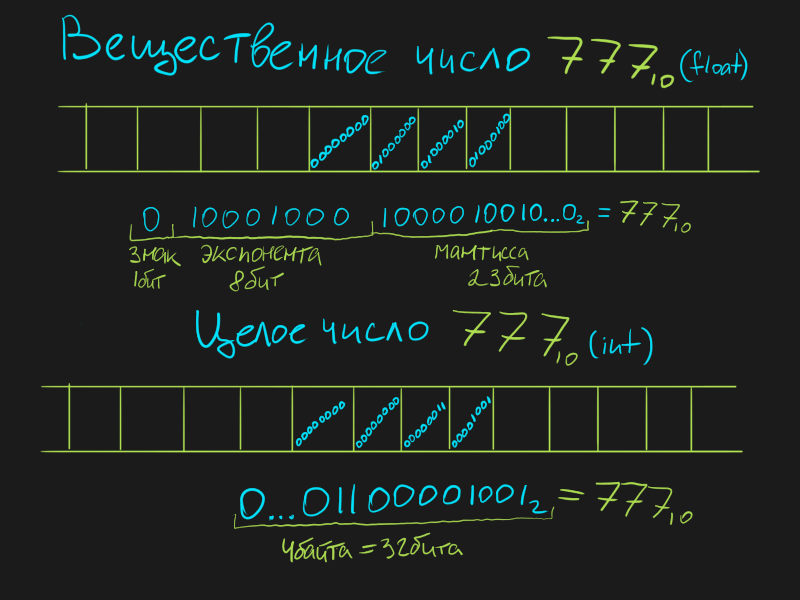 Вещественное число 777₁₀ (float)
00000000 01000000 01000010 01000100
0 10001000 1000010010...0₂ = 777₁₀
Знак экспонента мантисса
1бит 8бит 23бита
Целое число 777₁₀ (int)
00000000 00000000 00000011 00001001
0...01100001001₂ = 777₁₀
4байта = 32бита